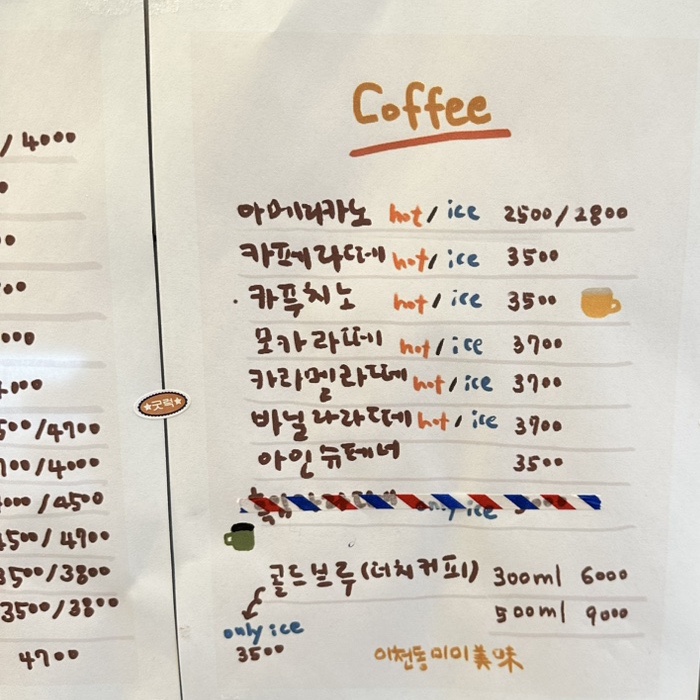 / 4000
500/4700
700/4000
000/4500
4500/4900
3500/3800
3500/3800
4700
★굿럭★
Coffee
아메리카노 hot/ice 2500/2800
카프페라떼 hot/ice 3500
카푸치노 hot/ice 3500
모카라떼 hot/ice 3700
카라멜라떼 hot/ice 3700
바닐라라떼 hot/ice 3700
아인슈테너 3500
only ice
콜드브루 (더치커피) 300ml 6000
500ml 9000
only ice
3500
이천동미미美味